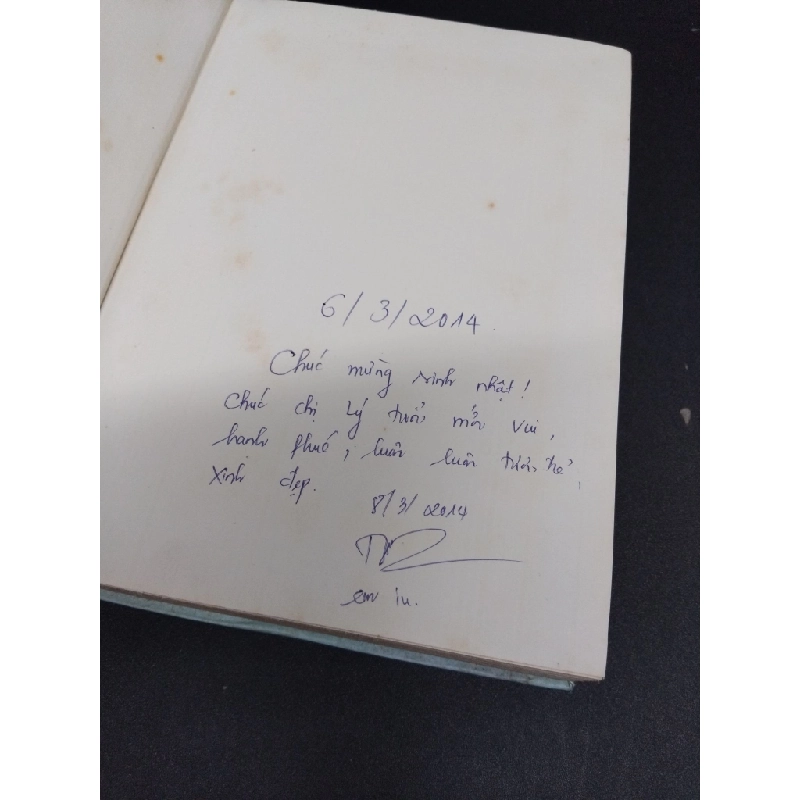 6/3/2014
Chúc mừng sinh nhật!
Chúc chị Lý tuổi mới vui,
hạnh phúc, luôn luôn trẻ,
xinh đẹp.
8/3/2014
em iu.